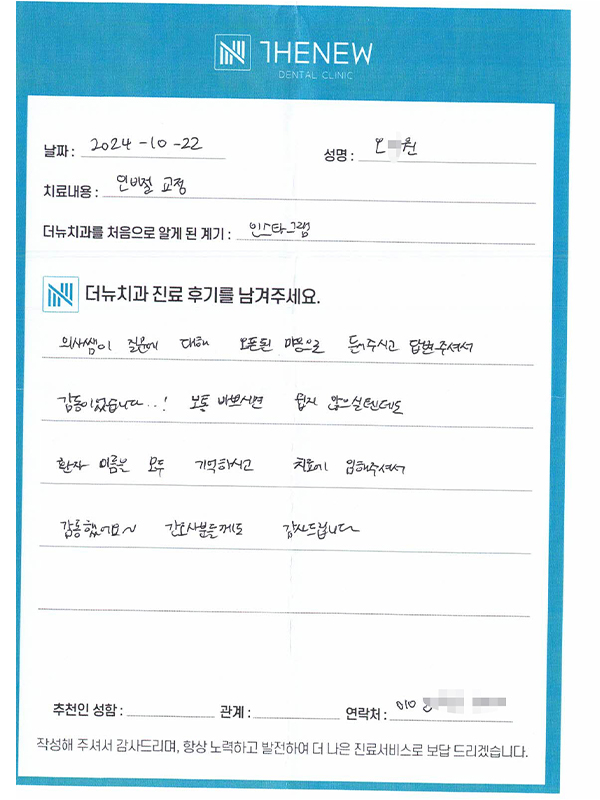 THENEW
DENTAL CLINIC
날짜 : 2024-10-22
성명 : 오 원
치료내용 : 인비절 교정
더뉴치과를 처음으로 알게 된 계기 : 인스타그램
더뉴치과 진료 후기를 남겨주세요.
의사쌤이 질문에 대해 오픈된 마음으로 듣어주시고 답변주셔서
감동이었습니다..! 보통 바쁘시면 쉽지 않으실텐데도
환자 이름을 모두 기억하시고 치료에 임해주셔서
감동했어요~ 간호사분들께도 감사드립니다
추천인 성함 :
관계 :
연락처 : 010
작성해 주셔서 감사드리며, 항상 노력하고 발전하여 더 나은 진료서비스로 보답 드리겠습니다.